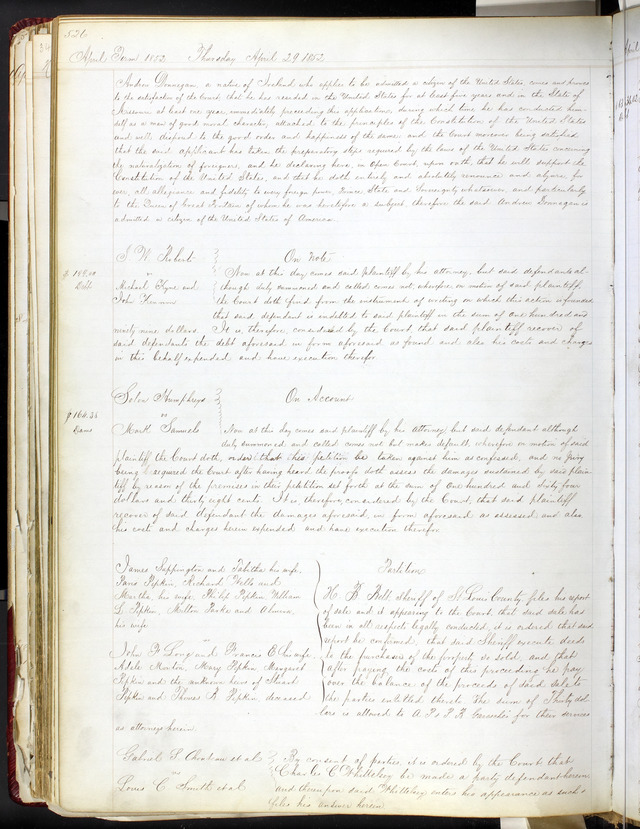 526
April Term 1852 Thursday April 29 1852
Andrew Dunnagan, a native of Ireland who applies to be admitted a citizen of the United States comes and proves
to the satisfaction of the Court, that he has resided in the United States for at least five years and in the State of
Missouri at least one year, immediately preceding this application, during which time he has conducted him-
self as a man of good moral character, attached to the principles of the Constitution of the United States
and well disposed to the good order and happiness of the same; and the Court moreover being satisfied
that the said applicant has taken the preparatory steps required by the laws of the United States concerning
the naturalization of foreigners, and he declaring here, in open Court, upon oath, that he will support the
Constitution of the United States, and that he doth entirely and absolutely renounce and abjure, for
ever, all allegiance and fidelity to every foreign power, Prince State and Sovereignty whatsoever, and particularly
to the Queen of Great Britain of whom he was heretofore a subject, therefore the said Andrew Dunnagan is
admitted a citizen of the United States of America.
J. W. Robert On Note
vs
$199.00
Debt
Michael Flynn and
John
Now at this day comes said plaintiff by his attorney, but said defendants al-
though duly summoned and called comes not, wherefore on motion of said plaintiff
the Court doth find from the instrument of writing on which this action is founded
that said defendant is indebted to said plaintiff in the sum of one hundred and
ninety nine dollars. It is, therefore, considered by the Court, that said plaintiff recover of
said defendants the debt aforesaid in form aforesaid as found and also his costs and charges
in this behalf expended and have execution therefor
Solon Humphreys On Account
vs
$164.38
Dams
Mark Samuels
Now at this day comes said plaintiff by his attorney but said defendant although
duly summoned and called comes not but makes default, wherefore on motion of said
plaintiff the Court doth order that his petition be taken against him as confessed, and no jury
being required the Court after having heard the proofs doth assess the damages sustained by said plain-
tiff by reason of the premises in their petition set forth at the sum of one hundred and sixty four
dollars and thirty eight cents. It is therefore considered by the Court, that said plaintiff
recover of said defendant the damages aforesaid, in form aforesaid as assessed and also
his costs and charges herein expended and have execution therefor
James Sappington and Tabitha his wife,
Jane Pipkin, Richard Wells and
Martha his wife, Philip Pipkin William
S Pipkin, Milton Parks and Almira
his wife
vs
John F Long and Frances E his wife
Adele Morton, Mary Pipkin Margaret
Pipkin and the unknown heirs of
Pipkin and Thomas B Pipkin, deceased
Partition
H B Belt sheriff of St Louis County files his report
of sale and it appearing to the Court that said sale has
been in all respects legally conducted, it is ordered that said
report be confirmed, that said Sheriff execute deeds
to the purchasers of the property so sold, and that
after paying the costs of this proceeding he pay
over the balance of the proceeds of said sale to
the parties entitled thereto. The sum of Thirty dol-
lars is allowed to A P & P B Garesche for their services
as attorneys herein.
Gabriel S. Chouteau et al
vs
Louis C. Smith et al
By consent of parties, it is ordered by the Court that
Charles C Whittelsey be made a party defendant herein
and thereupon said Whittelsey enters his appearance as such &
files his answer herein